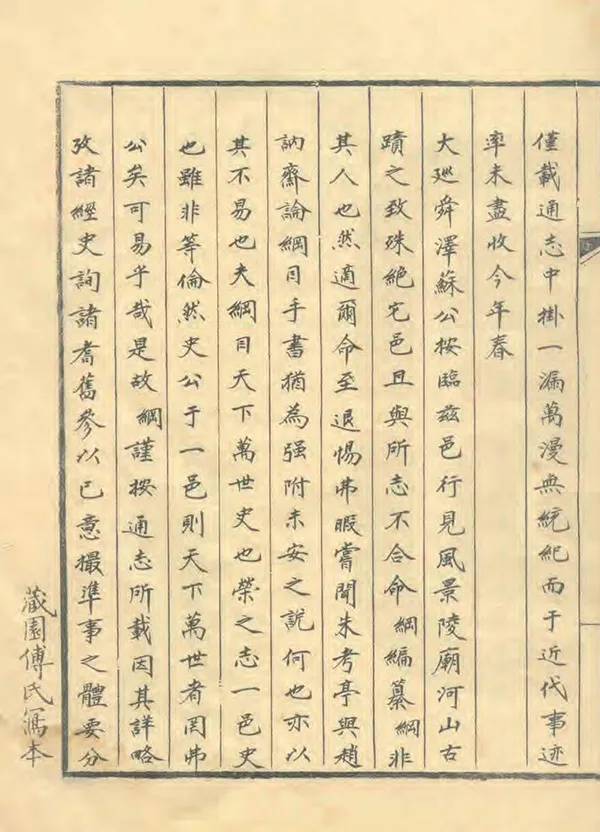 僅載通志中掛一漏萬漫無統紀而于近代事迹
率未盡收今年春
大廵舜澤蘇公按臨兹邑行見風景陵廟河山古
蹟之致殊絶它邑且與所志不合命綱編纂綱非
其人也然適爾命至退惕弗暇嘗聞朱考亭與趙
訥齋論綱目手書猶為强附未安之說何也亦以
其不易也夫綱目天下萬世史也榮之志一邑史
也雖非等倫然史公于一邑則天下萬世者罔弗
公矣可易乎哉是故綱謹按通志所載因其詳略
攷諸經史詢諸耆舊參以己意撮準事之體要分
藏園傅氏寫本